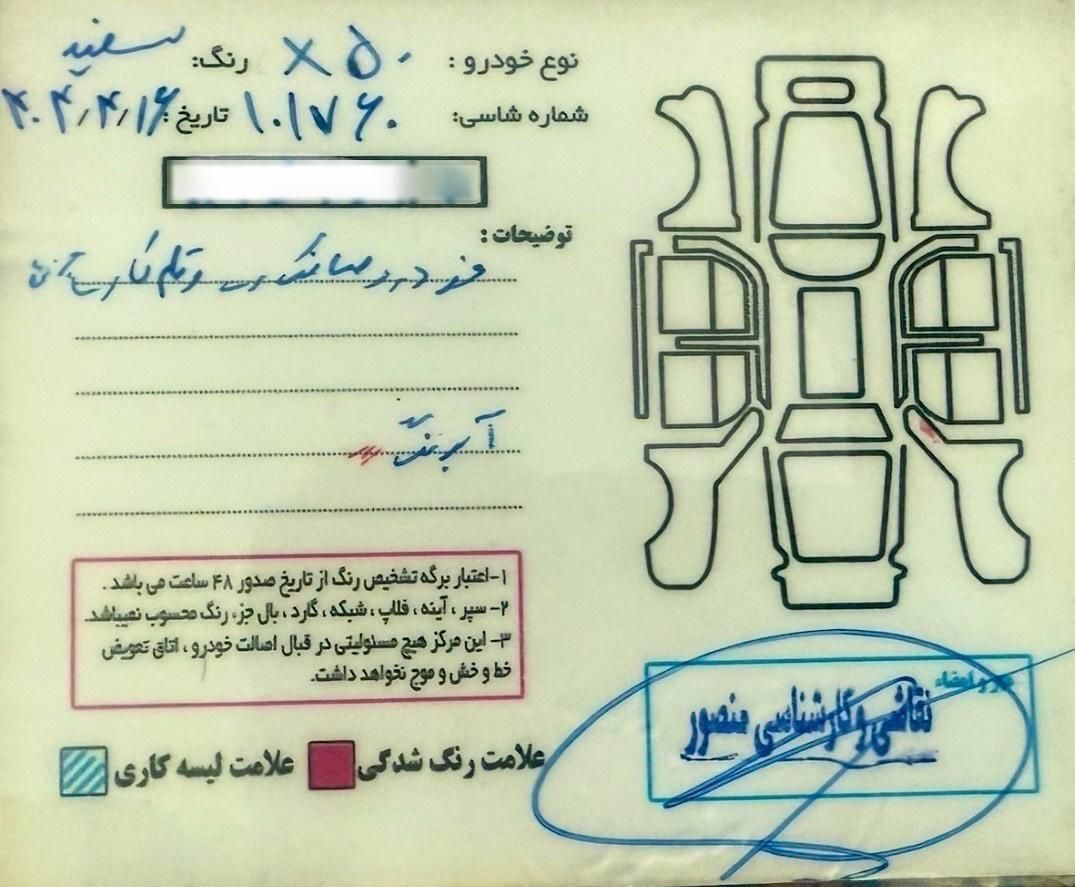 نوع خودرو : X۵۰ رنگ: سفید
شماره شاسی: ۱۰۱۷۶۰ تاریخ: ۴۰۴/۴/۱۶
توضیحات :
آبرنگ
۱-اعتبار برگه تشخیص رنگ از تاریخ صدور ۴۸ ساعت می باشد .
۲- سپر ، آینه ، فلاپ ، شبکه ، گارد ، بال جزء رنگ محسوب نمیباشد.
۳- این مرکز هیچ مسئولیتی در قبال اصالت خودرو ، اتاق تعویض
خط و خش و موج نخواهد داشت.
علامت رنگ شدگی علامت لیسه کاری
مهر و امضاء
نقاشی و کارشناسی منصور